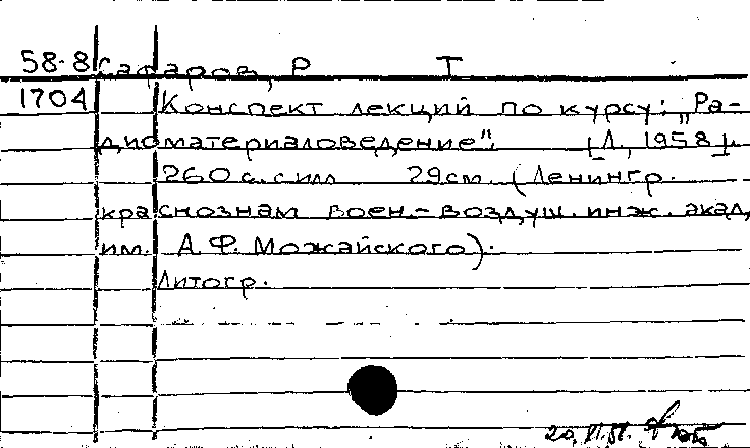 58-8 Сафаров, Р Т
1704 Конспект лекций по курсу: „Ра-
диоматериаловедение". [Л., 1958].
260 с. с илл 29 см. (Ленингр.
краснознам воен.-воздуш. инж. акад.
им. А.Ф. Можайского).
Литогр.